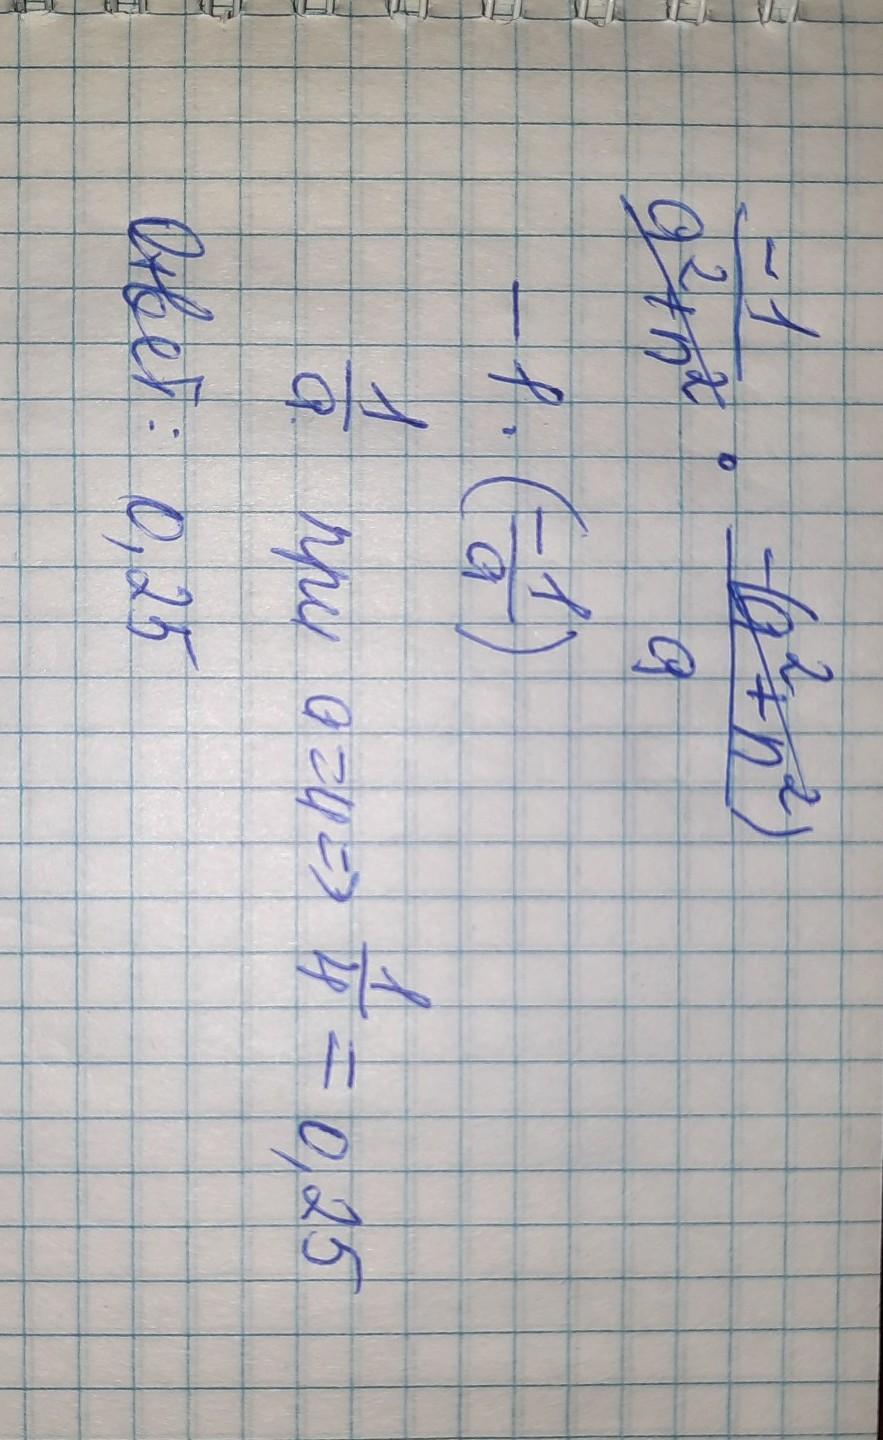 -1/(a²+n²) · -(a²+n²)/a
-1 · (-1/a)
1/a при a=4 => 1/4 = 0,25
Ответ: 0,25